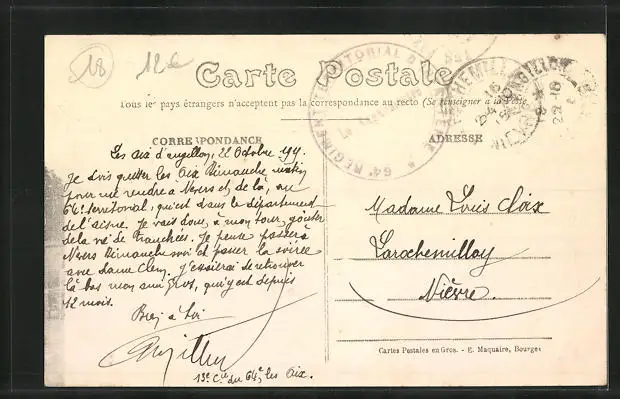 18
12e
Carte Postale
Tous les pays étrangers n'acceptent pas la correspondance au recto (Se renseigner à la Poste)
CORRESPONDANCE
ADRESSE
64e REGIMENT TERRITORIAL D'
Les aix d'angillon, 22 Octobre 191
Je dois quitter les Aix Dimanche matin
pour me rendre à Nevers et de là, au
64e territorial, qui est dans le département
de l'aisne. Je vais donc, à mon tour, goûter
de la vie de tranchées. Je pense passer à
Nevers Dimanche soir et passer la soirée
avec Dame Clem. J'essaierai de retrouver
là bas mon ami Gros, qui y est depuis
12 mois.
Bien à toi
13e Cie du 64e, les Aix.
Madame Louis Choix
Larochemillay
Nièvre.
Cartes Postales en Gros. - E. Maquaire, Bourges